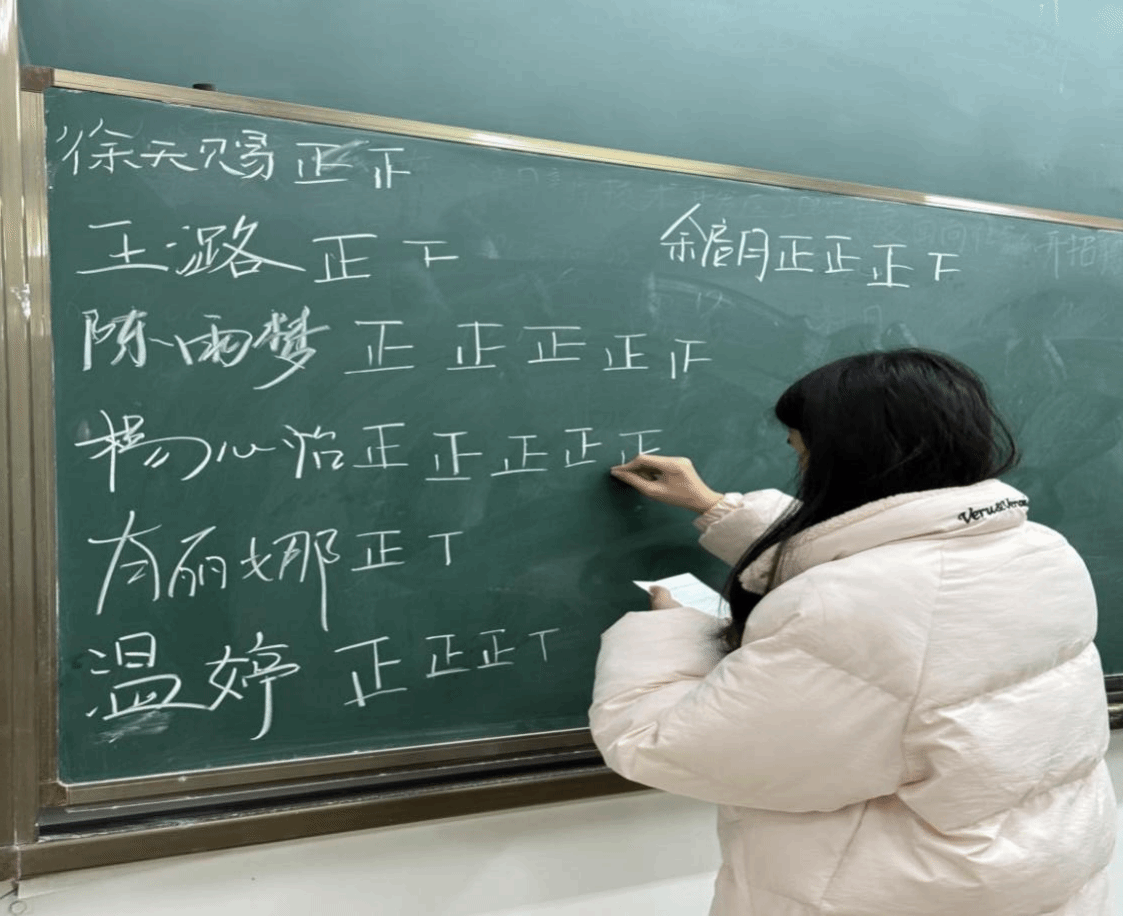 徐天赐 正 正
王潞 正 下
余眉月 正 正 正 下
陈雨梦 正 正 正 正 正
杨心怡 正 正 正 正 正
方丽娜 正 丅
温婷 正 正 正 丅
Veru&Verou